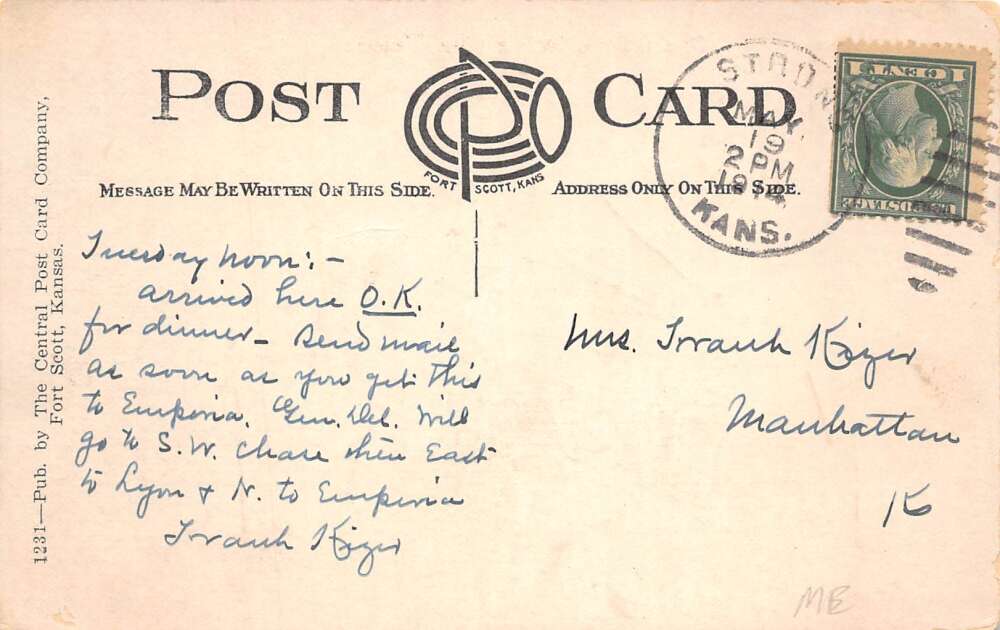 POST CARD
FORT SCOTT, KANS
MESSAGE MAY BE WRITTEN ON THIS SIDE.
ADDRESS ONLY ON THIS SIDE.
STRONG
MAY
19
2 PM
1914
KANS.
1 CENT 1
U.S. POSTAGE
1231—Pub. by The Central Post Card Company,
Fort Scott, Kansas.
Tuesday noon:-
arrived here O.K.
for dinner - Send mail
as soon as you get this
to Emporia, Gen. Del. Will
go to S.W. Chase then East
to Lyon + N. to Emporia
Frank Kizer
Mrs. Frank Kizer
Manhattan
K
ME